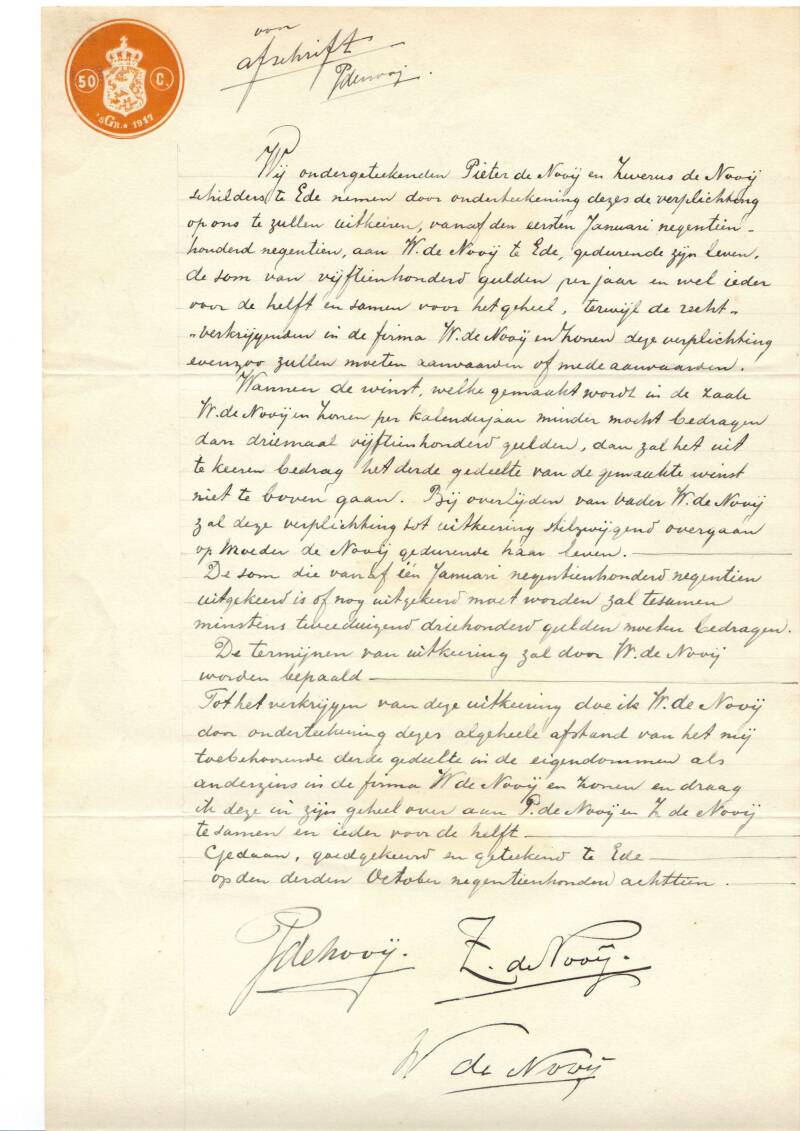 voor
afschrift
PdeNooij.
50 C.
'sGR. * 1917
Wij ondergeteekenden Pieter de Nooij en Zweerus de Nooij
schilders te Ede nemen door onderteekening dezes de verplichting
op ons te zullen uitkeeren, vanaf den eersten Januari negentien-
honderd negentien, aan W. de Nooij te Ede, gedurende zijn leven,
de som van vijftienhonderd gulden per jaar en wel ieder
voor de helft en samen voor het geheel, terwijl de recht-
verkrijgenden in de firma W. de Nooij en Zonen deze verplichting
evenzoo zullen moeten aanvaarden of mede aanvaarden.
Wanneer de winst, welke gemaakt wordt in de zaak
W. de Nooij en Zonen per kalenderjaar minder mocht bedragen
dan driemaal vijftienhonderd gulden, dan zal het uit
te keeren bedrag het derde gedeelte van de gemaakte winst
niet te boven gaan. Bij overlijden van vader W. de Nooij
zal deze verplichting tot uitkeering stilzwijgend overgaan
op Moeder de Nooij gedurende haar leven.
De som die vanaf één Januari negentienhonderd negentien
uitgekeerd is of nog uitgekeerd moet worden zal tesamen
minstens tweeduizend driehonderd gulden moeten bedragen.
De termijnen van uitkeering zal door W. de Nooij
worden bepaald
Tot het verkrijgen van deze uitkeering doe ik W. de Nooij
door onderteekening dezes algeheele afstand van het mij
toebehoorende derde gedeelte in de eigendommen als
anderzins in de firma W de Nooij en Zonen en draag
ik deze in zijn geheel over aan P. de Nooij en Z. de Nooij
te samen en ieder voor de helft
Gedaan, goedgekeurd en geteekend te Ede
op den derden October negentienhonderd achttien.
PdeNooij.
Z. de Nooij.
W de Nooij